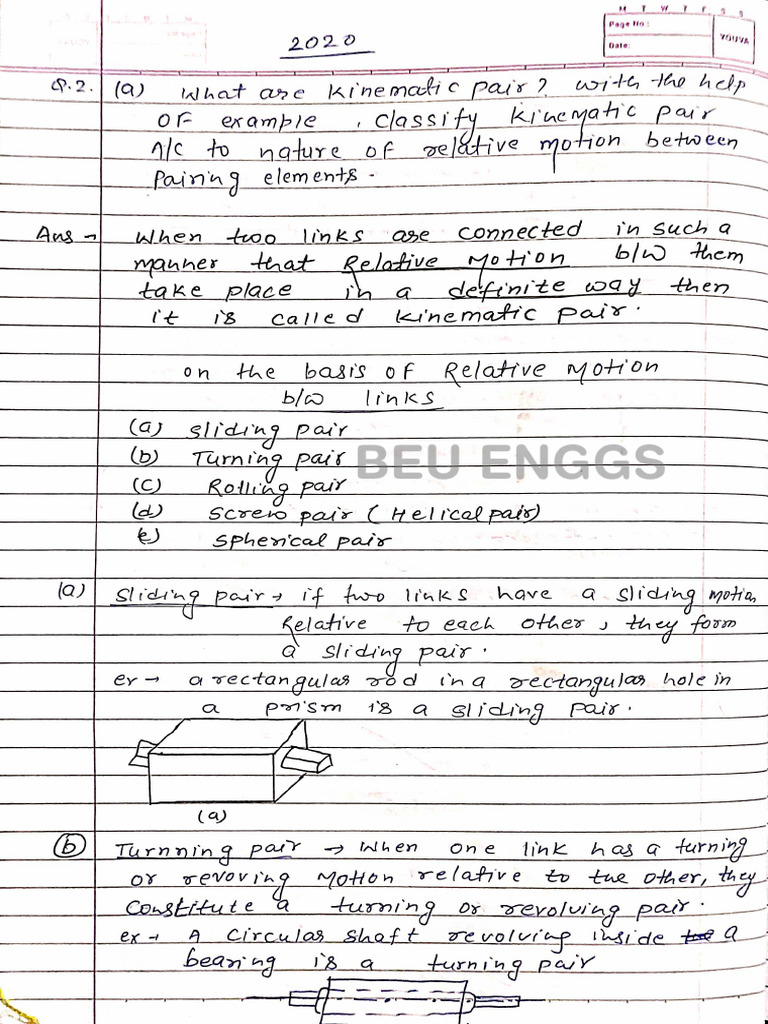 M T W T F S S
Page No.:
Date:
YOUVA
2020
Q.2. (a) What are Kinematic pair? with the help
OF example , classify Kinematic pair
A/C to nature of relative motion between
pairing elements.
Ans → When two links are connected in such a
manner that Relative Motion b/w them
take place in a definite way then
it is called Kinematic pair.
on the basis of Relative Motion
b/w links
(a) Sliding pair
(b) Turning pair
BEU ENGGS
(c) Rolling pair
(d) Screw pair (Helical pair)
e) Spherical pair
(a) Sliding pair → if two links have a sliding motion
Relative to each other, they form
a sliding pair.
ex → a rectangular rod in a rectangular hole in
a prism is a sliding pair.
(a)
(b) Turnning pair → When one link has a turning
or revoving Motion relative to the other, they
constitute a turning or revolving pair.
ex → A circular shaft revolving inside a
bearing is a turning pair